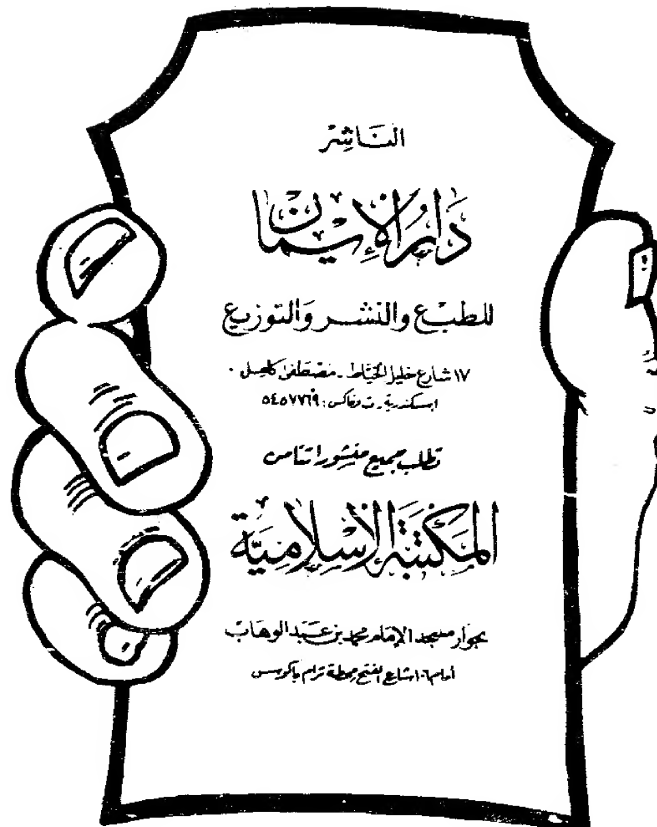 الناشر
دار الإيمان
للطبع والنشر والتوزيع
١٧ شارع خليل الخياط - مصطفى كامل -
اسكندرية - ت وفاكس: ٥٤٥٧٧٦٩
تطلب جميع منشوراتنا من
المكتبة الإسلامية
بجوار مسجد الإمام محمد بن عبد الوهاب
أمام شارع الفتح محطة ترام باكوس